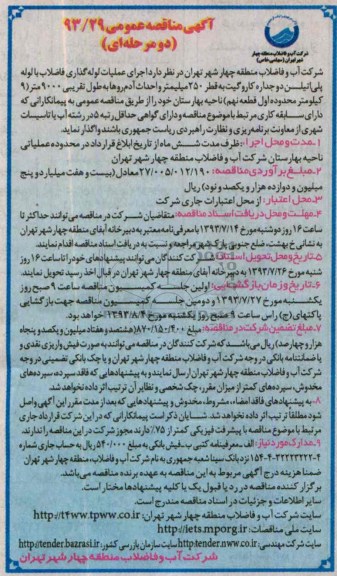 آگهی مناقصه عمومی ۹۳/۲۹
(دو مرحله‌ای)
شرکت آب و فاضلاب منطقه چهار
شهر تهران (سهامی خاص)
شرکت آب و فاضلاب منطقه چهار شهر تهران در نظر دارد اجرای عملیات لوله گذاری فاضلاب با لوله
پلی اتیلن دو جداره کاروگیت به قطر ۲۵۰ میلیمتر و احداث آدم روها به طول تقریبی ۹۰۰۰ متر (۹
کیلومتر محدوده اول قطعه نهم) ناحیه بهارستان خود را از طریق مناقصه عمومی به پیمانکارانی که
دارای سابقه کاری مرتبط با موضوع مناقصه و دارای گواهی حداقل رتبه ۵ در رشته آب یا تاسیسات
شهری از معاونت برنامه ریزی و نظارت راهبردی ریاست جمهوری باشند واگذار نماید.
۱-مدت و محل اجرا: ظرف مدت شش ماه از تاریخ ابلاغ قرارداد در محدوده عملیاتی
ناحیه بهارستان شرکت آب و فاضلاب منطقه چهار شهر تهران
۲-مبلغ برآوردی مناقصه: ۲۷/۰۰۵/۰۱۲/۱۹۰ معادل (بیست و هفت میلیارد و پنج
میلیون و دوازده هزار و یکصد و نود) ریال
۳-محل اعتبار: از محل اعتبارات جاری شرکت
۴-مهلت و محل دریافت اسناد مناقصه: متقاضیان شرکت در مناقصه می توانند حداکثر تا
ساعت ۱۶ روز دوشنبه مورخ ۱۳۹۳/۷/۱۴ با معرفی نامه معتبر به دبیرخانه آبفای منطقه چهار شهر تهران
به نشانی خ بهشت، ضلع جنوبی پارک شهر مراجعه و نسبت به دریافت اسناد مناقصه اقدام نمایند.
۵-تاریخ و محل تحویل اسناد: شرکت کنندگان می توانند پیشنهادهای خود را تا ساعت ۱۶ روز
شنبه مورخ ۱۳۹۳/۷/۲۶ به دبیرخانه آبفای منطقه چهار شهر تهران در قبال اخذ رسید تحویل نمایند.
۶-تاریخ و زمان بازگشایی: اولین جلسه کمیسیون مناقصه ساعت ۹ صبح روز
یکشنبه مورخ ۱۳۹۳/۷/۲۷ و دومین جلسه کمیسیون مناقصه جهت بازگشایی
پاکتهای (ج) راس ساعت ۹ صبح روز یکشنبه مورخ ۱۳۹۳/۸/۴ خواهد بود.
۷-مبلغ تضمین شرکت در مناقصه: مبلغ ۸۷۰/۱۵۰/۴۰۰ (هشتصد و هفتاد میلیون و یکصد و پنجاه
هزار و چهارصد) ریال می باشد که شرکت کنندگان در مناقصه می توانند به صورت فیش واریزی نقدی و
یا ضمانتنامه بانکی در وجه شرکت آب و فاضلاب منطقه چهار شهر تهران و یا چک بانکی تضمینی در وجه
شرکت آب و فاضلاب منطقه چهار شهر تهران ارسال نمایند و به پیشنهادهایی که فاقد سپرده، سپرده های
مخدوش، سپرده های کمتر از میزان مقرر، چک شخصی و نظایر آن ترتیب اثر داده نخواهد شد.
۸-به پیشنهادهای فاقد امضاء، مشروط، مخدوش و پیشنهادهایی که بعد از مدت مقرر این آگهی واصل
شود مطلقا ترتیب اثر داده نخواهد شد. شایان ذکر است پیمانکارانی که در این شرکت قرارداد جاری
مرتبط با موضوع مناقصه با پیشرفت فیزیکی کمتر از ۷۵٪ دارند مجوز شرکت در این مناقصه را ندارند.
۹-مدارک مورد نیاز: الف-معرفینامه کتبی ب-فیش بانکی به مبلغ ۵۴۰/۰۰۰ ریال به حساب جاری شماره
۱۵۴-۴-۳۲۲۳۲۲۲-۴ نزد بانک سینا شعبه جمهوری به نام شرکت آب و فاضلاب منطقه چهار شهر تهران
ضمنا هزینه درج آگهی مربوط به این مناقصه به عهده برنده مناقصه می باشد.
برگزار کننده مناقصه در رد یا قبول یک یا کلیه پیشنهادها مختار است.
سایر اطلاعات و جزئیات در اسناد مناقصه مندرج است.
سایت شرکت آب و فاضلاب منطقه چهار شهر تهران: http://t4ww.tpww.co.ir
سایت ملی مناقصات: http://iets.mporg.ir
سایت شرکت مهندسی: http://tender.nww.co.ir سایت سازمان بازرسی کشور: http://tender.bazrasi.ir
شرکت آب و فاضلاب منطقه چهار شهر تهران